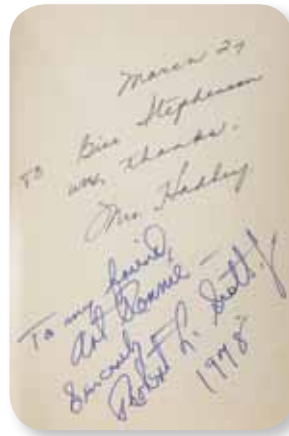 March 27
To Bill Stephenson
with thanks.
Mrs. Hadley
To my friend,
Art Ronnie —
Sincerely
Robert L. Scott Jr
1978